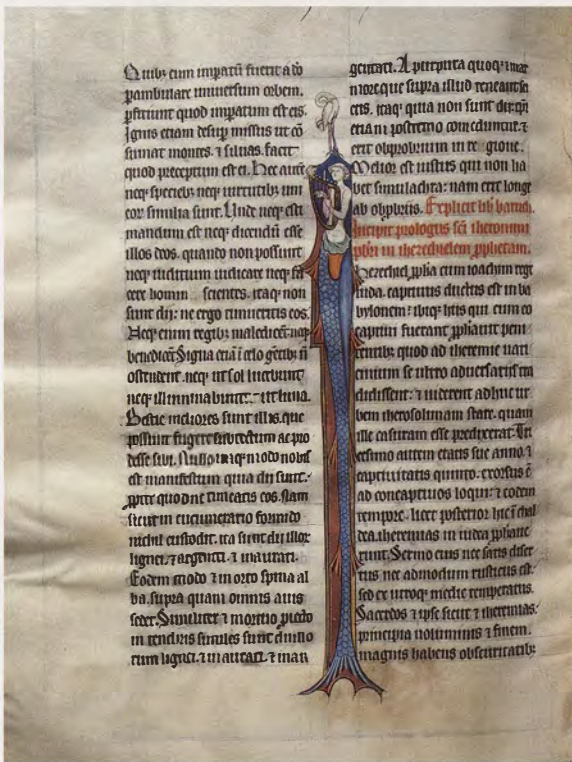 Quibȝ cum imꝑatū fuerit a dō
ꝑambulare uniuersum orbem.
ꝑficiunt quod imꝑatum est eis.
Ignis etiam desuꝑ missus ut cō
sumat montes. ⁊ siluas. facit
quod preceptum est ei. Hec autē
neqꝫ speciebꝫ neqꝫ uirtutibꝫ uni
eoꝝ similia sunt. Unde neqꝫ esti
mandum est neqꝫ dicendū esse
illos deos. quando non possunt
neqꝫ iudicium iudicare neqꝫ fa
cere homin scientes. itaqꝫ non
sunt dij: ne ergo timueritis eos.
Neqꝫ enim regibꝫ maledicēt neqꝫ
benedicēt Signa etiā ī celo gētibꝫ nō
ostendent. neqꝫ ut sol lucebunt
neqꝫ illuminabunt. ut luna.
Bestie meliores sunt illis. que
possunt fugere sub tectum ac pro
desse sibi. Nullo itaqꝫ modo nobis
est manifestum quia dij sunt.
ꝓpter quod ne timeatis eos. Nam
sicut in cucumerario formido
nichil custodit. ita sunt dij illoꝝ
lignei. ⁊ argentei ⁊ inaurati.
Eodem modo ⁊ in orto spina al
ba. supra quam omnis auis
sedet. Similiter ⁊ mortuo ꝓiecto
in tenebris similes sunt dij illo
rum lignei. ⁊ inaurati. ⁊ inar
gentati. A purpura quoqꝫ ⁊ mar
more que supra illud tenent sci
etis. itaqꝫ quia non sunt dij. ip̄i
etiam postremo comeduntur. ⁊
erit obprobrium in regione.
Melior est iustus qui non ha
bet simulachra: nam erit longe
ab obꝓbriis. Explicit lib̄ baruch.
Incipit prologus sc̄i iheronimi
pb̄ri in ihezechielem ꝓphetam.
hezechiel ꝓpħa cum ioachim rege
iuda. captiuus ductus est in ba
bylonem: ibiqꝫ hiis qui cum eo
captiui fuerant ꝓphauit peni
tentibꝫ quod ad iheremie uati
cinium se ultro aduersariis tra
didissent: ⁊ uiderent adhuc ur
bem iherosolimam stare. quam
ille casuram esse predixerat. Tri
cesimo autem etatis sue anno. ⁊
captiuitatis quinto. exorsus ē
ad concaptiuos loqui: ⁊ eodem
tempore. licet posterior hic ī chal
dea. iheremias in iudea ꝓphaue
runt. Sermo eius nec satis diser
tus nec admodum rusticus est:
sed ex utroqꝫ medie temperatus.
Sacerdos ⁊ ipse sicut ⁊ iheremias.
principia uoluminis ⁊ finem.
magnis habens obscuritatibꝫ